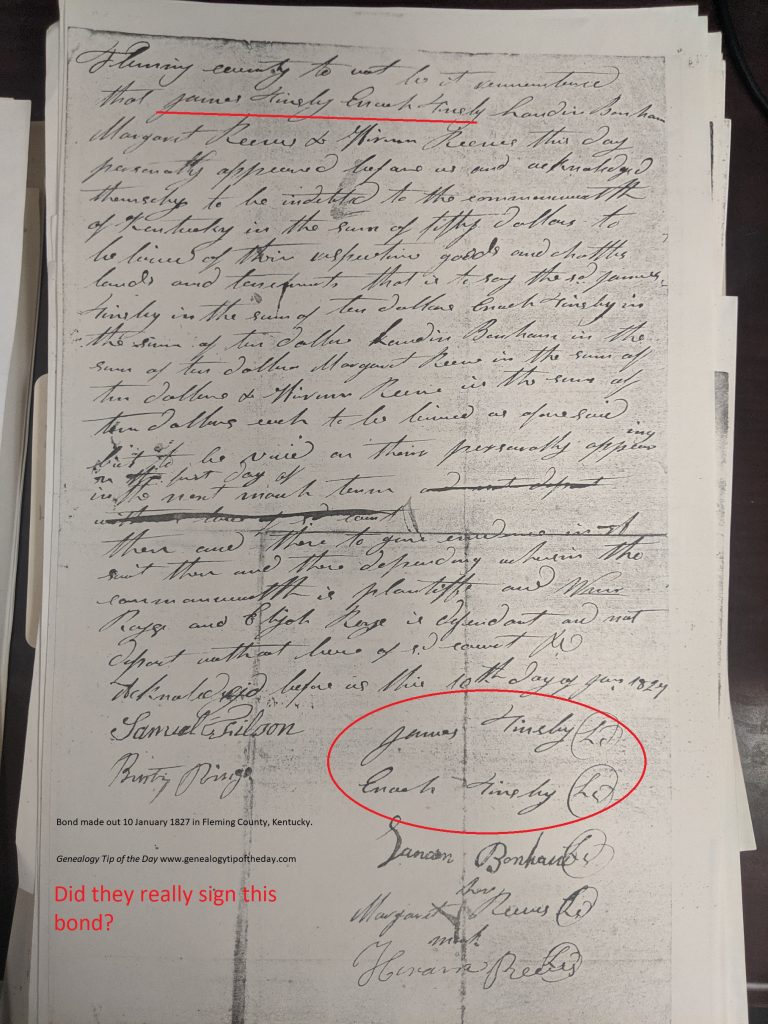 Fleming county to wit be it remembered
that James Tinsly Enoch Tinsly Landin Bonham
Margaret Reeves & Hiram Reeves this day
personally appeared before us and acknoledged
themselvs to be indebted to the commonwealth
of Kentucky in the sum of fifty dollars to
be leived of their respective goods and chattles
lands and tenements that is to say the sd. James
Tinsly in the sum of ten dollars Enoch Tinsly in
the sum of ten dollars Landin Bonham in the
sum of ten dollars Margaret Reeve in the sum of
ten dollars & Hiram Reeve in the sum of
ten dollars each to be leived as aforesaid
but to be void on their personally appearing
in the first day of
the next march term and not depart
without leave of sd court
then and there to give evidence in
suit then and there depending wherein the
commonwealth is plaintiffs and Wm
and Elijah is defendant and not
depart without leave of sd court
before us this 10th day of Jany 1827
Samuel Wilson James Tinsly (Ls)
Enoch Tinsly (Ls)
Bonham (Ls)
her
Margaret X Reeves (Ls)
mark
Hiram Reeves
Bond made out 10 January 1827 in Fleming County, Kentucky.
Genealogy Tip of the Day www.genealogytipoftheday.com
Did they really sign this
bond?